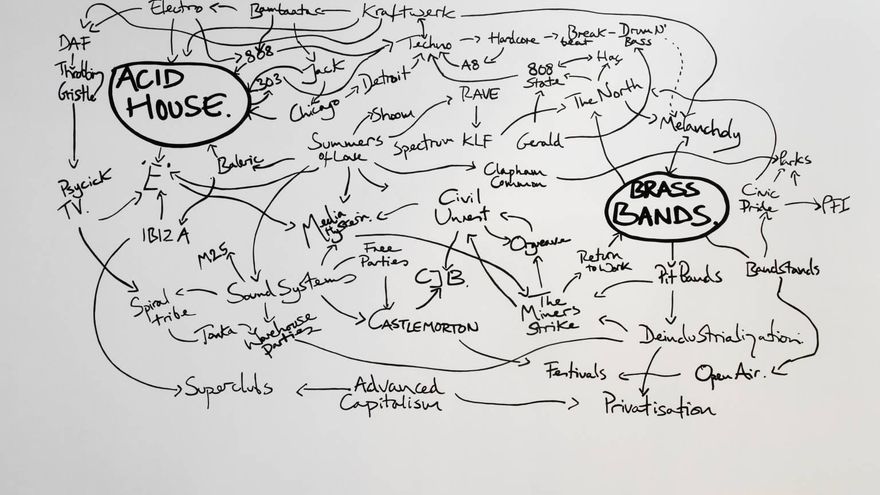 Electro
Bambaataa
Kraftwerk
DAF
808
Techno
Hardcore
Break-
beat
Drum N'
Bass
Throbbing
Gristle
ACID
HOUSE.
303
Jack
Detroit
A8
808
State
Hac
Chicago
Shoom
RAVE
The North
Melancholy
Summers
of Love
Spectrum
KLF
Gerald
Balaric
Clapham
Common
Parks
Psychick
TV.
'E'.
IBIZA
Media
Hysteria.
Civil
Unrest
BRASS
BANDS.
Civic
Pride
PFI
M25
Free
Parties
Orgreave
Return
to Work
Pit Bands
Bandstands
CJB.
Spiral
tribe
Sound Systems
The
Miners
Strike
Tonka
Warehouse
Parties
CASTLEMORTON
Deindustrialization.
Festivals
Open Air.
Superclubs
Advanced
Capitalism
Privatisation